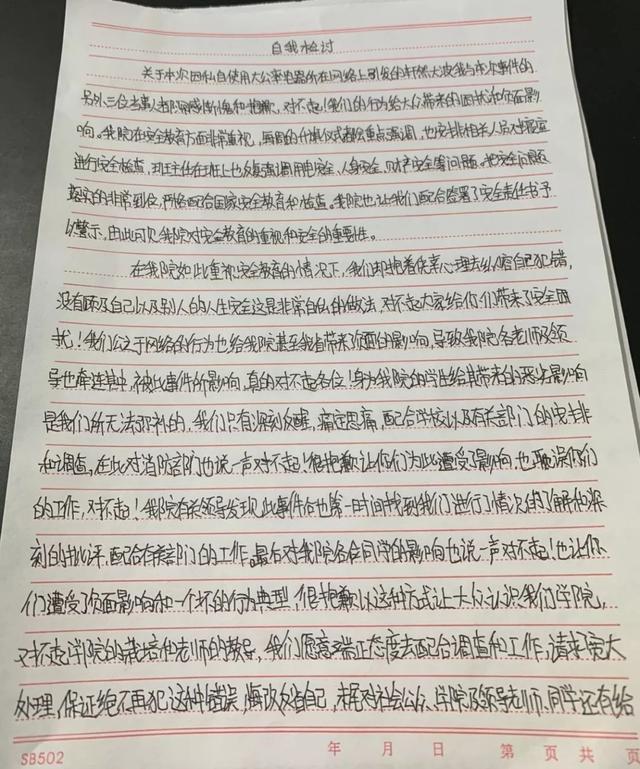 自我检讨
关于本次因私自使用大功率电器所在网络上引发的轩然大波我与本次事件的
另外三位当事人都深感悔愧和抱歉，对不起！我们的行为给大众带来的困扰和负面影
响。我院在安全教育方面非常重视，每周的升旗仪式都会重点强调，也安排相关人员对寝室
进行安全检查，班主任在班上也反复强调用电安全，人身安全，财产安全等问题。把安全问题
落实的非常到位，严格配合国家安全教育和检查。我院也让我们配合签署了安全责任书予
以警示，由此可见我院对安全教育的重视和安全的重要性。
在我院如此重视安全教育的情况下，我们却抱着侥幸心理去纵容自己犯错，
没有顾及自己以及别人的人生安全这是非常自私的做法，对不起大家给你们带来了安全困
扰！我们公之于网络的行为也给我院甚至我省带来了负面的影响，导致我院各老师及领
导也牵连其中，被此事件所影响，真的对不起各位！身为我院的学生给其带来的恶劣影响
是我们所无法弥补的，我们只有深刻反醒，痛定思痛，配合学校以及有关部门的安排
和调查，在此对消防部门也说一声对不起！很抱歉让你们为此遭受了影响，也耽误你们
的工作，对不起！我院有关领导发现此事件后也第一时间找到我们进行了情况的了解和深
刻的批评，配合有关部门的工作。最后对我院各位同学的影响也说一声对不起！也让你
们遭受了负面影响和一个坏的行为典型，很抱歉以这种方式让大众认识我们学院，
对不起学院的栽培和老师的教导，我们愿意端正态度去配合调查和工作，请求宽大
处理，保证绝不再犯这种错误，悔改反省自己，末尾对社会公众、学院及领导老师、同学还有给
SB502 年 月 日 第 页 共 页